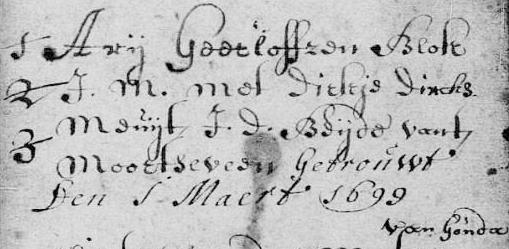 1 Arij Geerloffzen Blok
2 J. M. met Dirkje Dircks
3 Meuijt J. d. Beijde vant
Moortseveen Getrouwt
den 1 Maert 1699
van Gouda